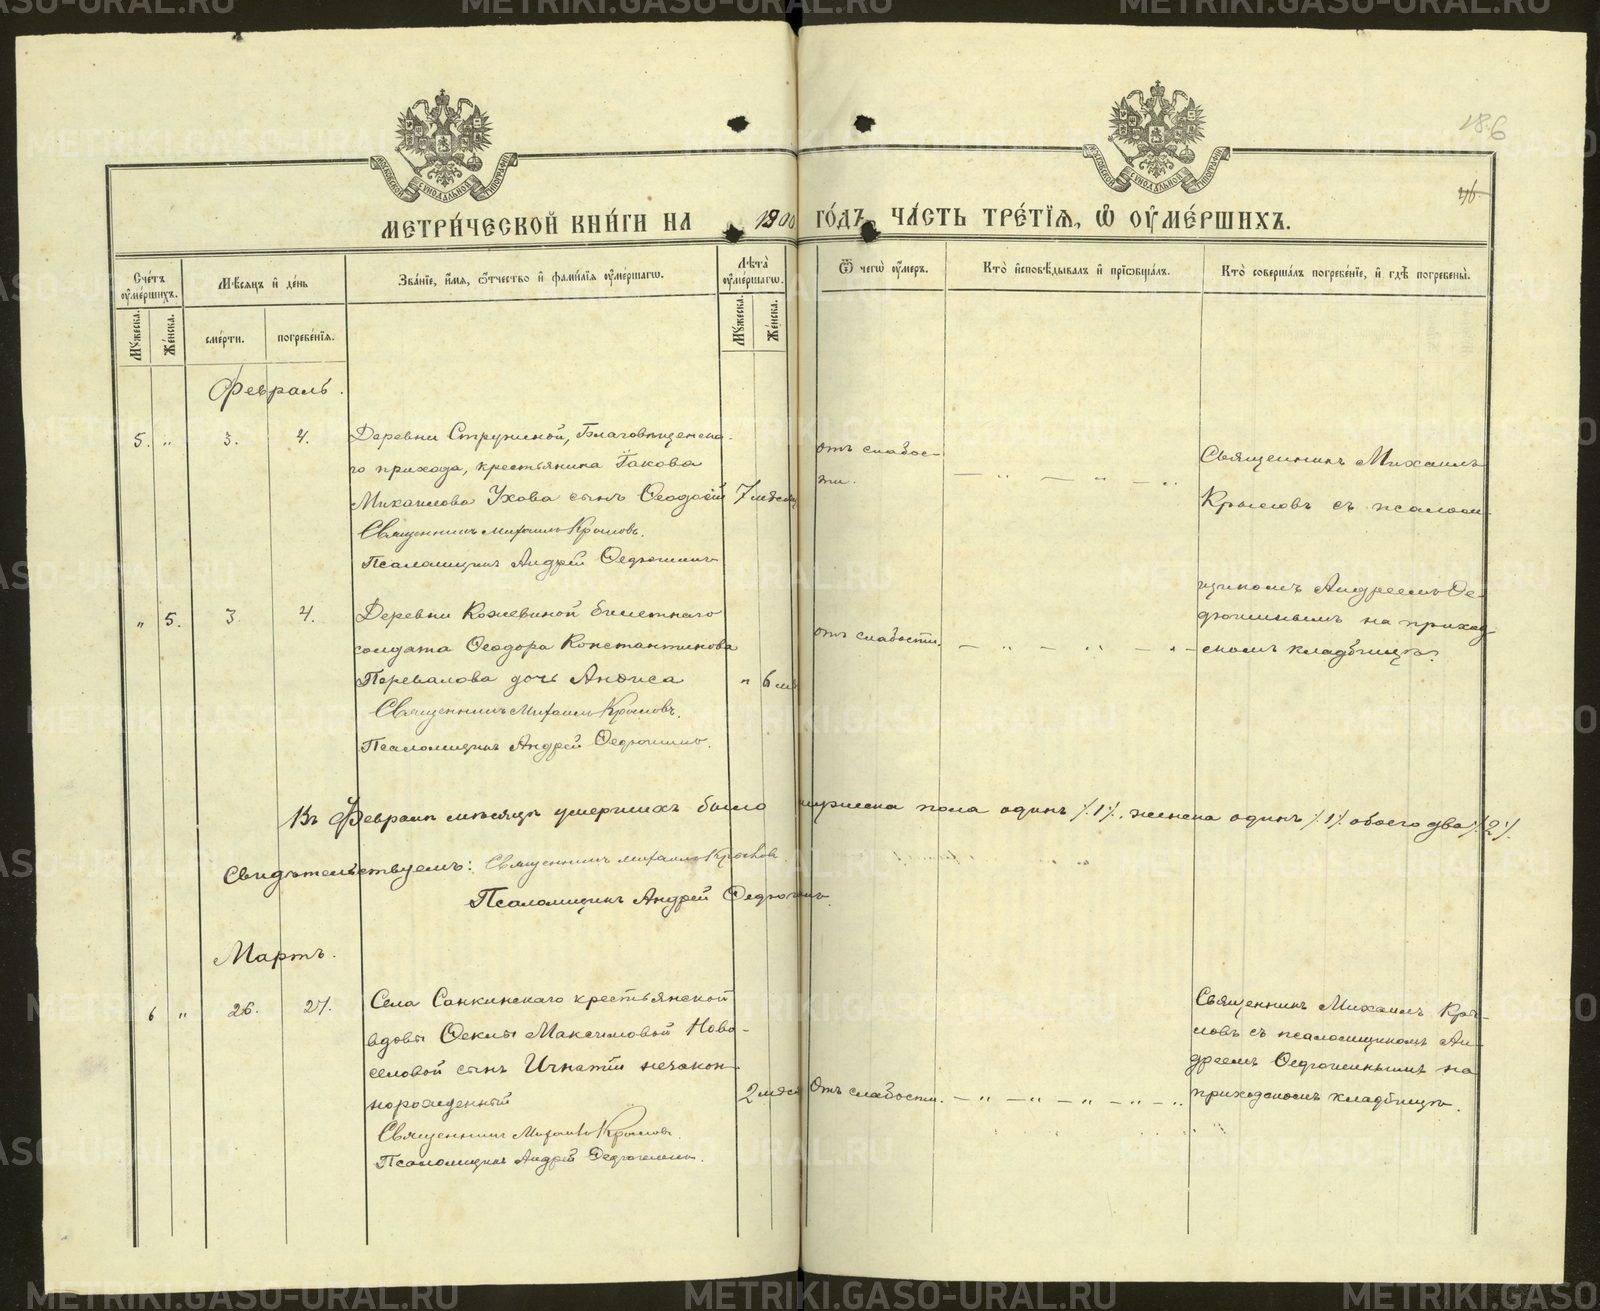 186
46
МЕТРИ́ЧЕСКОЙ КНИ́ГИ НА 1900 ГО́ДЪ, ЧА́СТЬ ТРЕ́ТІЯ, Ѿ ОУ҆МЕ́РШИХЪ.
Сче́тъ оу҆ме́ршихъ.
Мꙋ́жеска.
Же́нска.
Мѣ́сяцъ и҆ де́нь
сме́рти.
погребе́нїя.
Зва́нїе, и҆́мя, ѻ҆́тчество и҆ фами́лїя оу҆ме́ршагѡ.
Лѣта̀ оу҆ме́ршагѡ.
Мꙋ́жеска.
Же́нска.
Ѿ чегѡ̀ оу҆́меръ.
Кто̀ и҆сповѣ́дывалъ и҆ прїѡбща́лъ.
Кто̀ соверша́лъ погребе́нїе, и҆ гдѣ̀ погребены̀.
Февраль.
5. „ 3. 4.
Деревни Стружиной, Благовѣщенска-
го прихода, крестьянина Іакова
Михаилова Ухова сынъ Ѳеодосій 7 мѣсяц
Священникъ Михаилъ Крыловъ.
Псаломщикъ Андрей Ѳедюшинъ
отъ слабос-
ти.
Священникъ Михаилъ
Крыловъ съ псалом-
щикомъ Андреемъ Ѳе-
дюшинымъ на приход-
скомъ кладбищѣ.
„ 5. 3. 4.
Деревни Кожевиной билетнаго
солдата Ѳеодора Константинова
Перевалова дочь Анѳиса „ 6 мѣ
Священникъ Михаилъ Крыловъ.
Псаломщикъ Андрей Ѳедюшинъ.
отъ слабости.
Въ Февралѣ мѣсяцѣ умершихъ было мужеска пола одинъ /.1/., женска одинъ /.1/. обоего два /.2/.
Свидѣтельствуемъ: Священникъ Михаилъ Крыловъ.
Псаломщикъ Андрей Ѳедюшинъ.
Мартъ.
6 „ 26. 27.
Села Санкинскаго крестьянской
вдовы Ѳеклы Максимовой Ново-
селовой сынъ Игнатій незакон-
норожденный 2 мѣся
Священникъ Михаилъ Крыловъ.
Псаломщикъ Андрей Ѳедюшинъ.
Отъ слабости.
Священникъ Михаилъ Кры-
ловъ съ псаломщикомъ Ан-
дреемъ Ѳедюшинымъ на
приходскомъ кладбищѣ.
METRIKI.GASO-URAL.RU